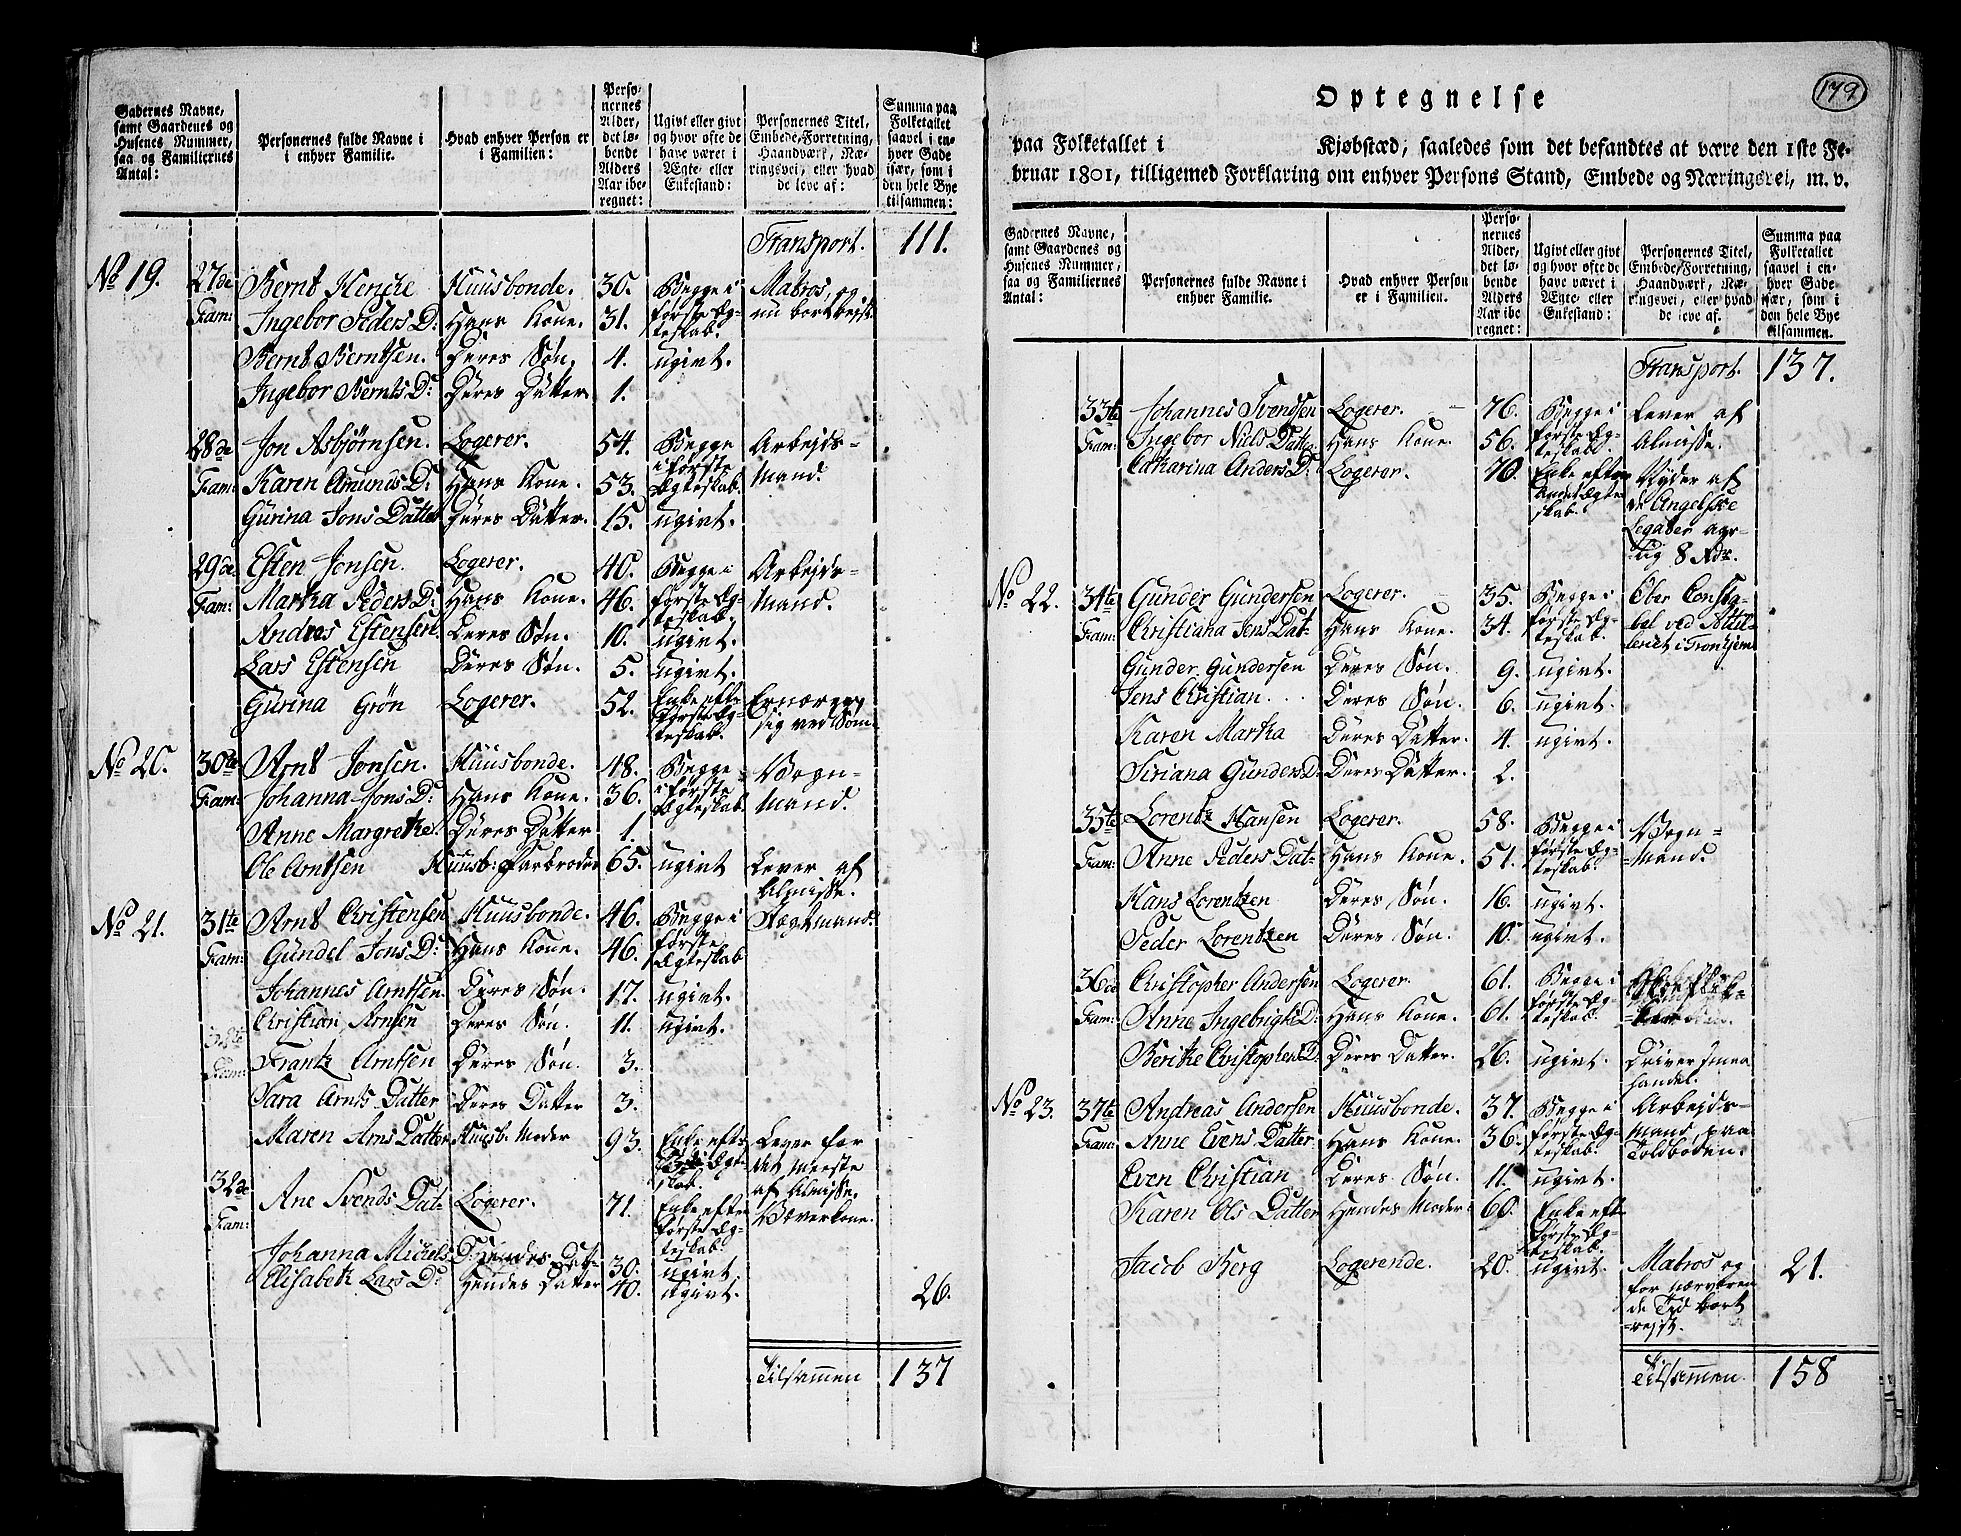 Gadernes Navne, samt Gaardenes og Husenes Nummer, saa og Familiernes Antal:
Personernes fulde Navne i i enhver Familie.
Hvad enhver Person er i Familien:
Personernes Alder, det løbende Alders Aar iberegnet:
Ugivt eller givt og hvor ofte de have været i Ægte- eller Enkestand:
Personernes Titel, Embede, Forretning, Haandværk, Næringsvei, eller hvad de leve af:
Summa paa Folketallet saavel i enhver Gade især, som i den hele Bye tilsammen:
Transport. 111.
No 19. 27de Fam: Bernt Hencke Huusbonde. 30. Begge i første Ægteskab. Matros og nu bortrejst.
Ingebor Peders D: Hans Kone. 31.
Bernt Berntsen. Deres Søn. 4. ugivt.
Ingebor Bernts D: Deres Datter 1.
28de Fam: Jon Asbjørnsen. Logerer. 54. Begge i første Ægteskab. Arbejdsmand.
Karen Amunds D: Hans Kone. 53.
Gurina Jons Datter Deres Datter. 15. ugivt.
29de Fam: Esten Jonsen. Logerer. 40. Begge i første Ægteskab. Arbejdsmand.
Martha Peders D: Hans Kone. 46.
Andres Estensen. Deres Søn. 10. ugivt.
Lars Estensen Deres Søn. 5. ugivt.
Gurina Grøn Logerer. 52. Enke efter første Ægteskab. Ernærer sig ved Søm.
No 20. 30te Fam: Arnt Jonsen. Huusbonde. 48. Begge i første Ægteskab. Vognmand.
Johanna Jons D: Hans Kone. 36.
Anne Margrethe. Deres Datter 1.
Ole Arntsen Huusb: Farbroder 65. ugivt Lever af Almisse.
No 21. 31te Fam: Arnt Christensen Huusbonde. 46. Begge i første Ægteskab
Gundel Jons D: Hans Kone. 46.
Johannes Arntsen. Deres Søn. 17. ugivt.
Christian Arnsen Deres Søn. 11. ugivt.
32te Fam:
Frantz Arntsen Deres Søn. 3.
Sara Arnts Datter Deres Datter 3.
Maren Arns Datter Huusb. Moder 93. Enke efter Ægteskab. Lever for det meeste af Almisse.
32de Fam: Ane Svends Dat- Logerer. 71. Enke efter første Ægteskab. Væverkone.
Johanna Michels D: Hendes Dat- 30. ugivt
Elisabeth Lars D: Hendes Datter 40. ugivt. 26.
Tilsammen 137
179
Optegnelse
paa Folketallet i Kjøbstæd, saaledes som det befandtes at være den 1ste Februar 1801, tilligemed Forklaring om enhver Persons Stand, Embede og Næringsvei, m. v.
Gadernes Navne, samt Gaardenes og Husenes Nummer, saa og Familiernes Antal:
Personernes fulde Navne i enhver Familie.
Hvad enhver Person er i Familien.
Personernes Alder, det løbende Alders Aar iberegnet:
Ugivt eller givt og hvor ofte de have været i Ægte- eller Enkestand:
Personernes Titel, Embede, Forretning, Haandværk, Næringsvei, eller hvad de leve af.
Summa paa Folketallet saavel i enhver Gade især, som i den hele Bye tilsammen.
Transport. 137.
33te Fam: Johannes Svendsen Logerer. 76. Begge i første Ægteskab. Lever af Almisse.
Ingebor Niels Datter Hans Kone. 56.
Catharina Anders D: Logerer. 70. Enke efter Andet Ægteskab. Nyder af de Angelske Legater aarlig 8 Rdr.
No 22. 34te Fam: Gunder Gundersen Logerer. 35. Begge i første Ægteskab.
Christiana Jens Dat- Hans Kone. 34.
Gunder Gundersen Deres Søn. 9. ugivt.
Jens Christian. Deres Søn. 6. ugivt.
Karen Martha Deres Datter. 4. ugivt.
Siriana Gunders D: Deres Datter. 2.
35te Fam: Lorentz Hansen Logerer. 58. Begge i første Ægteskab. Vognmand.
Anne Peders Dat- Hans Kone. 51.
Hans Lorentzen Deres Søn. 16. ugivt.
Peder Lorentzen Deres Søn. 10. ugivt.
36te Fam: Christopher Andersen Logerer. 61. Begge i første Ægteskab.
Anne Ingebrigts D: Hans Kone. 61.
Berithe Christophers D: Deres Datter. 26. ugivt. Driver smaa handel.
No 23. 37te Fam: Andreas Andersen Huusbonde. 37. Begge i første Ægteskab. Arbejdsmand paa Toldboden.
Anne Evens Datter Hans Kone. 36.
Even Christian Deres Søn. 11. ugivt.
Karen Ols Datter Hendes Moder 60. Enke eft første Ægteskab.
Jacob Berg Logerende. 20. ugivt. Matros og for nærværende Tid bortrejst. 21.
Tilsammen. 158